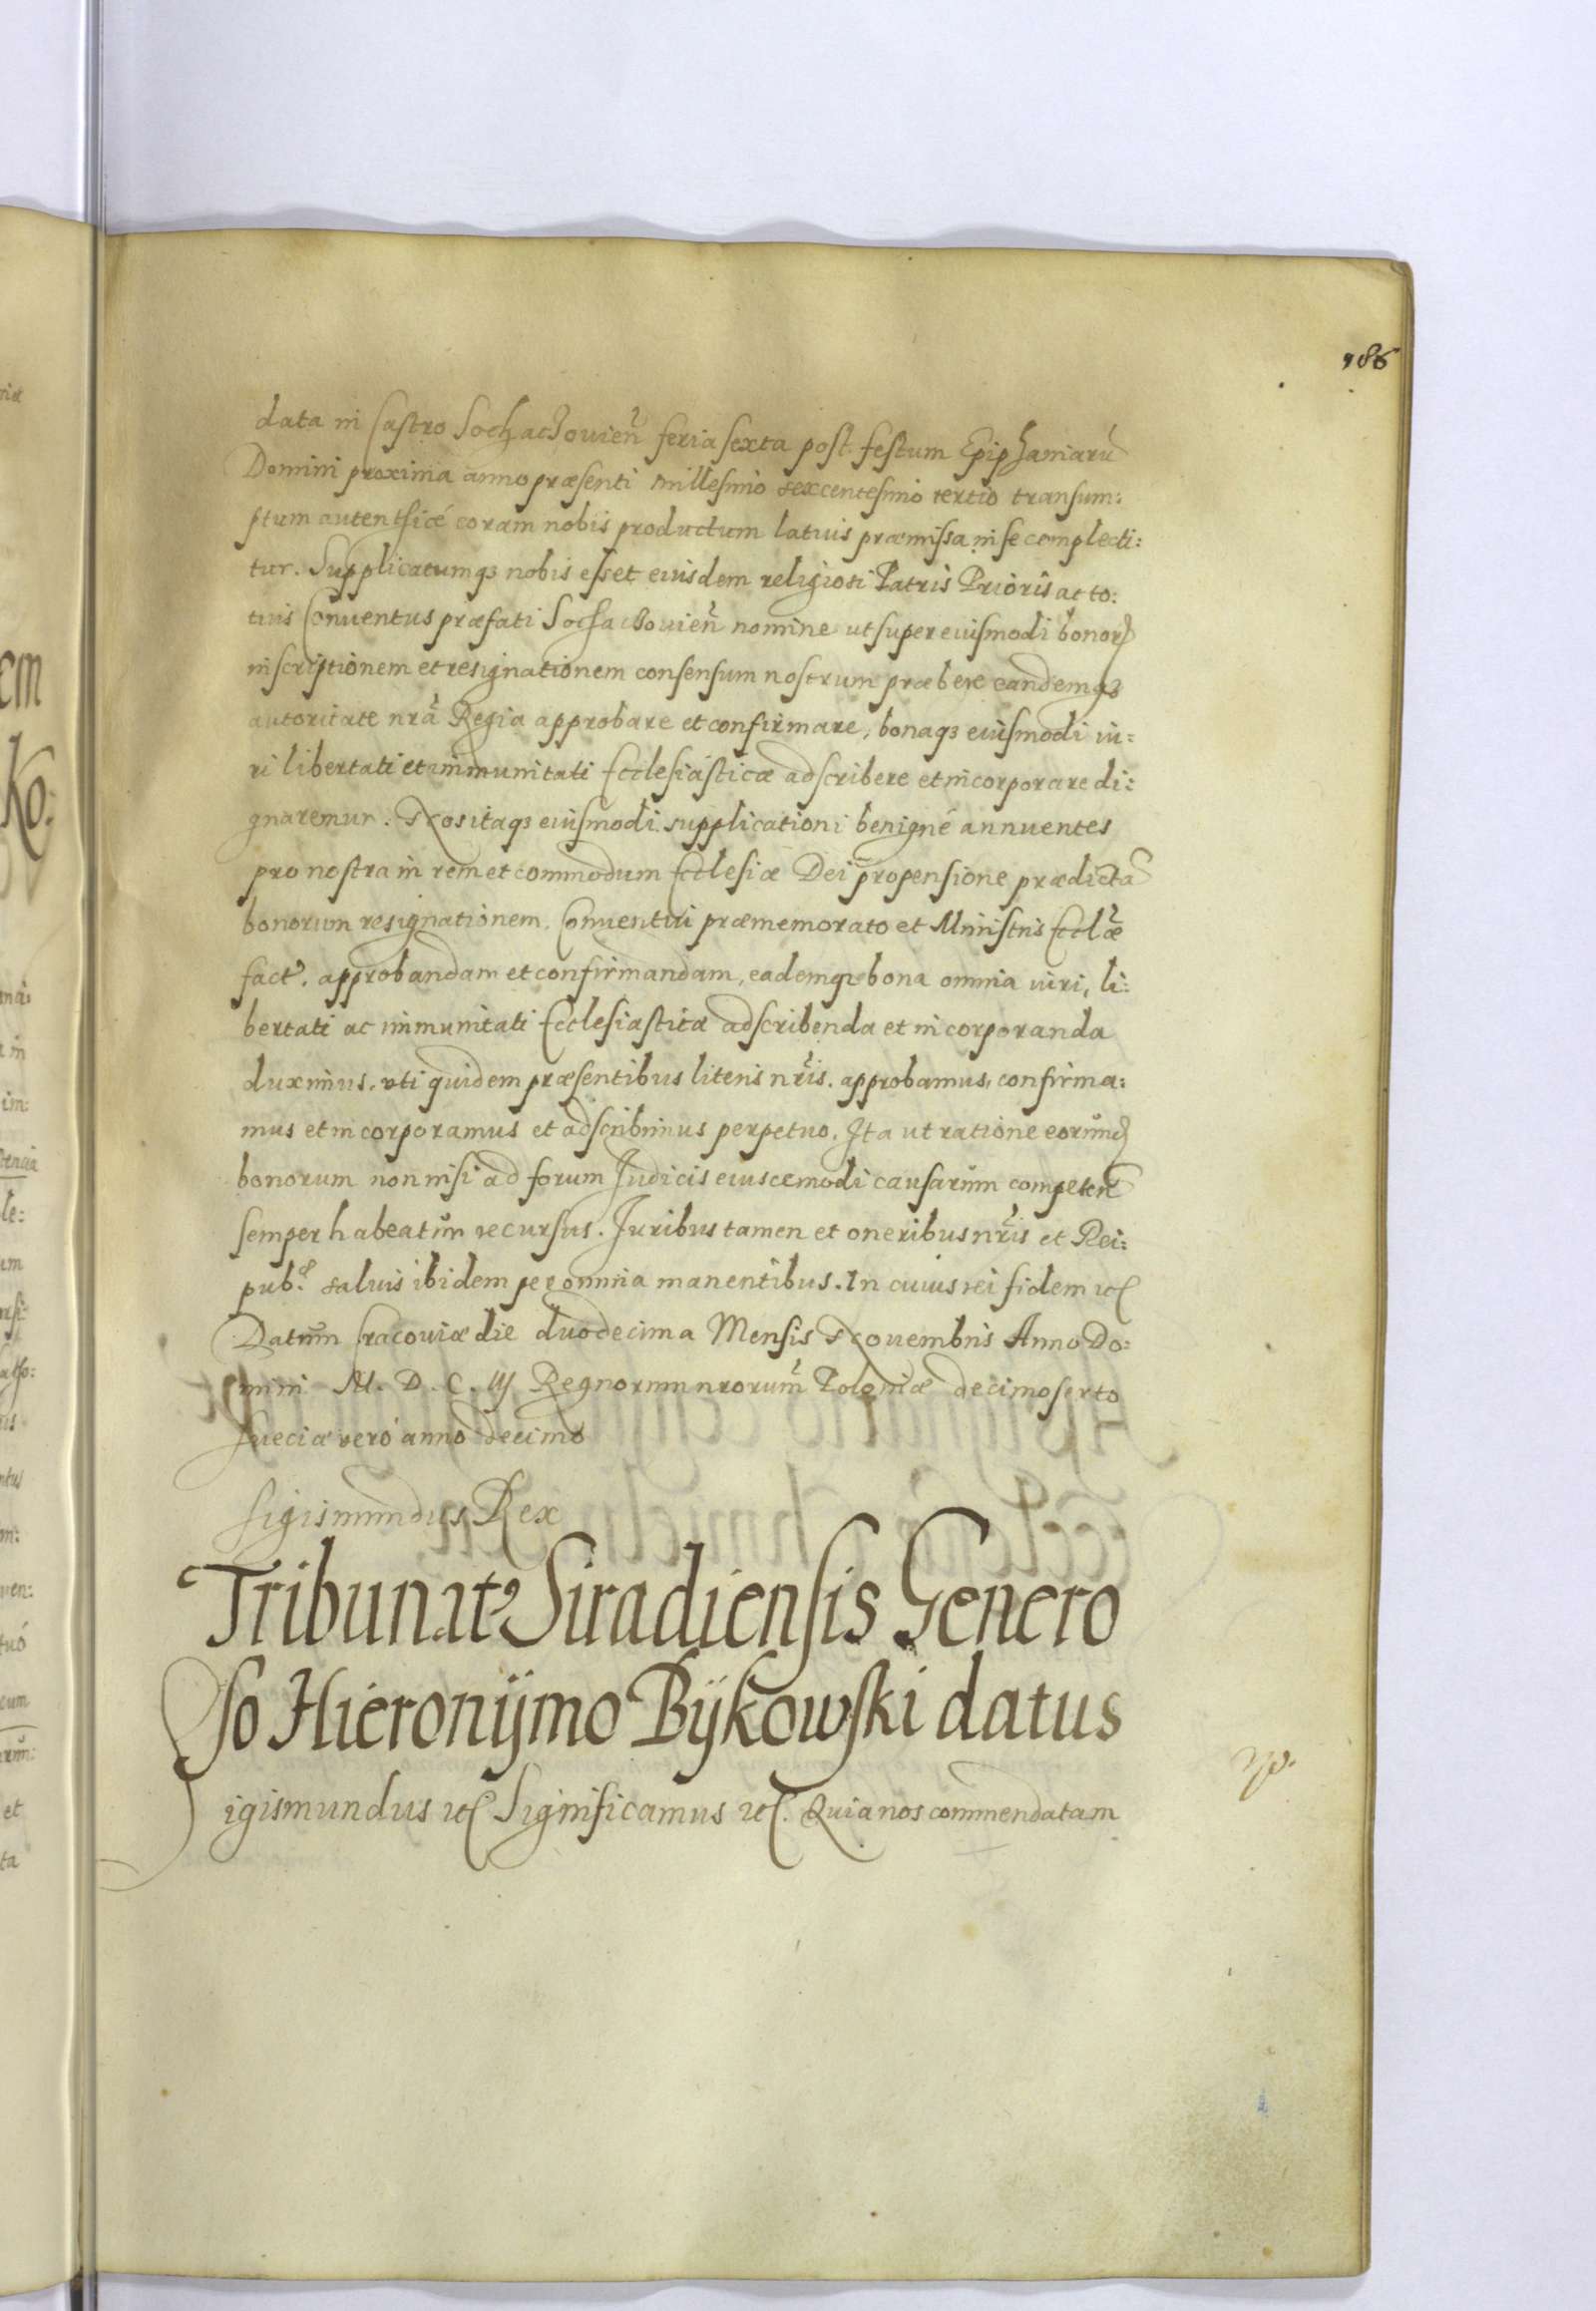 186
data in Castro Sochaczouien̄ feria sexta post festum Epiphaniarū
Domini proxima anno præsenti millesimo sexcentesimo tertio transum:
ptum autenthicé coram nobis productum latius præmissa in se complecti:
tur. Supplicatumqȝ nobis esset eiusdem religiosi Patris Prioris ac to:
tius Conuentus præfati Sochaczouien̄ nomine ut super eiusmodi bonorꝝ
inscriptionem et resignationem consensum nostrum præbere eandemqȝ
autoritate nrā Regia approbare et confirmare, bonaqȝ eiusmodi iu:
ri libertati et immunitati Ecclesiasticæ adscribere et incorporare di:
gnaremur. Nos itaqȝ eiusmodi supplicationi benigné annuentes
pro nostra in rem et commodum Ecclesiæ Dei propensione prædictā
bonorum resignationem, Conuentui præmemorato et Ministris Eccl̄æ
fact. approbandam et confirmandam, eademqȝ bona omnia iuri, li:
bertati ac immunitati Ecclesiasticæ adscribenda et incorporanda
duximus, uti quidem præsentibus literis nr̄is. approbamus, confirma:
mus et incorporamus et adscribimus perpetuo. Ita ut ratione eorund̄
bonorum non nisi ad forum Iudicis eiuscemodi causarum competen̄
semper habeatur recursus. Iuribus tamen et oneribus nr̄is et Rei:
pub.æ saluis ibidem per omnia manentibus. In cuius rei fidem etc
Datum Cracouiæ die duodecima Mensis Nouembris Anno Do:
mini M. D. C. III Regnorum nrorum̄ Poloniæ decimosexto
Sueciæ veró anno decimo
Sigismundus Rex
Tribunat9 Siradiensis Genero
so Hieronÿmo Bÿkowski datus
igismundus etc Significamus etc. Quia nos commendatam